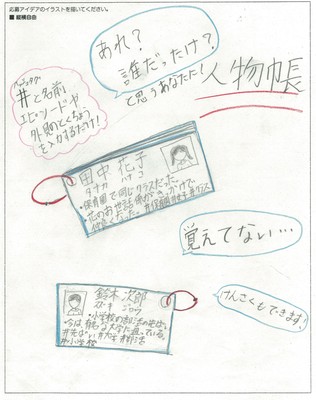 応募アイデアのイラストを描いてください。
■ 縦横自由
あれ?
誰だったけ?
と思うあなたに!
人物帳
ハッシュタグ
#と名前
エピソードや
外見のとくちょう
を入力するだけ!
田中 花子
タナカ ハナコ
・保育園で同じクラスだった。
・花のお世話係がきっかけで
仲良くなった。
覚えてない…
鈴木 次郎
スズキ ジロウ
けんさくもできます。
#小学校